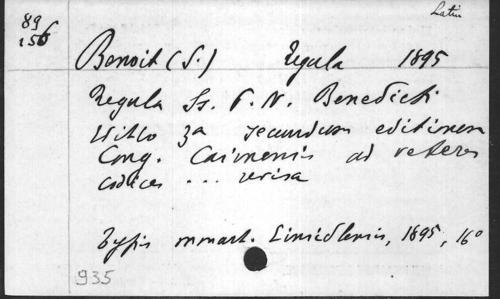 Latin
89
156
Benoit (S.) Regula 1895
Regula Ss. P. N. Benedicti
editio 3a secundum editinem
Cong. Casinensis ad veteres
codices ... revisa
Typis monast. Einsiedlensis, 1895, 16º
935